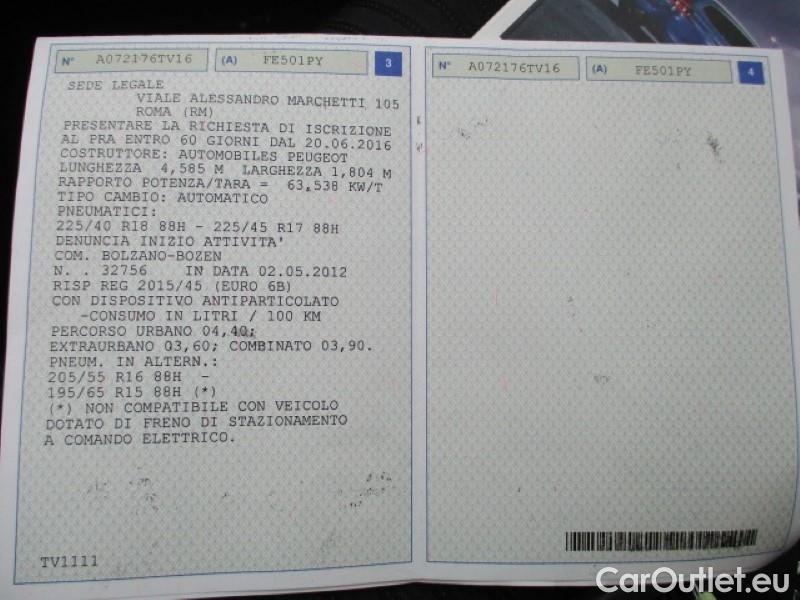 N° A072176TV16 (A) FE501PY 3
SEDE LEGALE
VIALE ALESSANDRO MARCHETTI 105
ROMA (RM)
PRESENTARE LA RICHIESTA DI ISCRIZIONE
AL PRA ENTRO 60 GIORNI DAL 20.06.2016
COSTRUTTORE: AUTOMOBILES PEUGEOT
LUNGHEZZA 4,585 M LARGHEZZA 1,804 M
RAPPORTO POTENZA/TARA = 63,538 KW/T
TIPO CAMBIO: AUTOMATICO
PNEUMATICI:
225/40 R18 88H - 225/45 R17 88H
DENUNCIA INIZIO ATTIVITA'
COM. BOLZANO-BOZEN
N. . 32756 IN DATA 02.05.2012
RISP REG 2015/45 (EURO 6B)
CON DISPOSITIVO ANTIPARTICOLATO
-CONSUMO IN LITRI / 100 KM
PERCORSO URBANO 04,40;
EXTRAURBANO 03,60; COMBINATO 03,90.
PNEUM. IN ALTERN.:
205/55 R16 88H -
195/65 R15 88H (*)
(*) NON COMPATIBILE CON VEICOLO
DOTATO DI FRENO DI STAZIONAMENTO
A COMANDO ELETTRICO.
TV1111
N° A072176TV16 (A) FE501PY 4
CarOutlet.eu